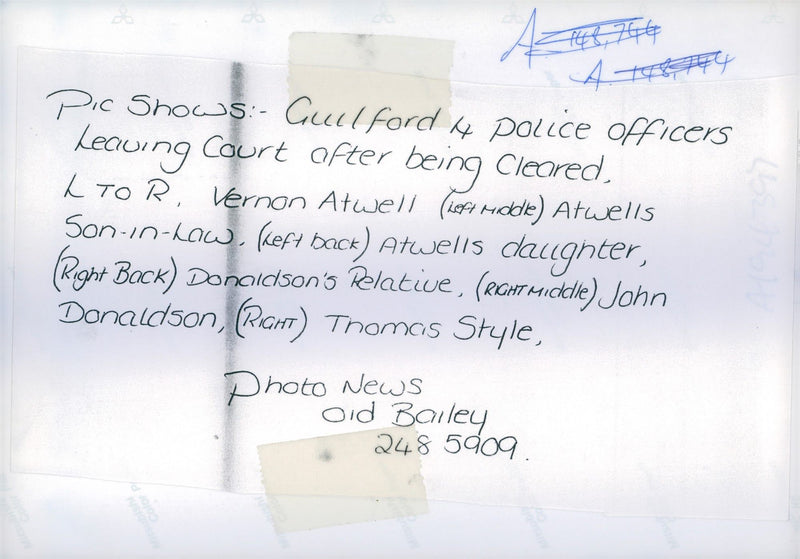 A. 148,744
A. 148,744
Pic Shows:- Guilford 4 police officers
Leaving Court after being Cleared.
L TO R. Vernon Atwell (Left Middle) Atwells
Son-in-Law. (Left back) Atwells daughter,
(Right Back) Donaldson's Relative, (RIGHT Middle) John
Donaldson, (RIGHT) Thomas Style,
Photo News
Old Bailey
248 5909.